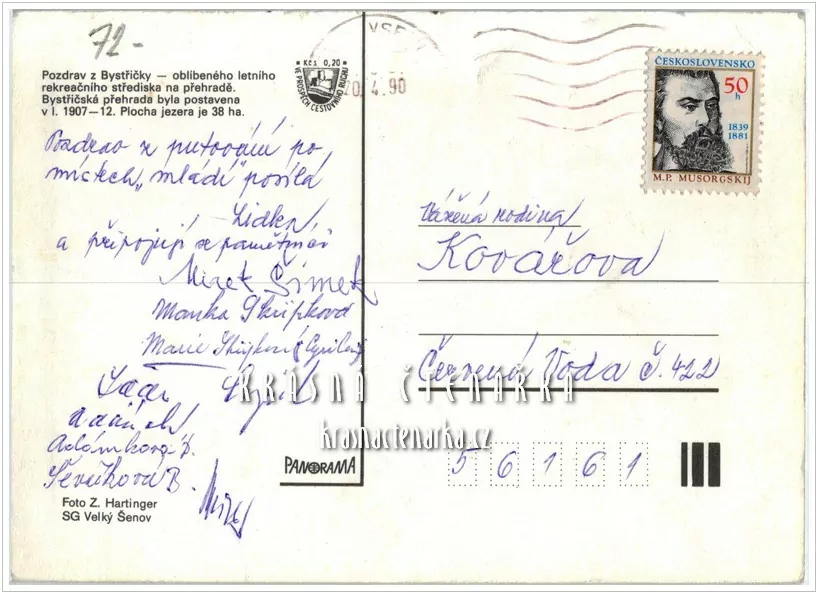 72-
Pozdrav z Bystřičky — oblíbeného letního
rekreačního střediska na přehradě.
Bystřičská přehrada byla postavena
v l. 1907—12. Plocha jezera je 38 ha.
Kčs 0,20
VE PROSPĚCH CESTOVNÍHO RUCHU
VSE
20.4.90
ČESKOSLOVENSKO
50
h
1839
1881
M.P. MUSORGSKIJ
Pozdrav z putování po
místech „mládí" posílá
Lidka
a připojují se
Mirek Šimek
Manka Skřipková
Marie
Adámková
Ševčíková B.
Vážená rodina
Kovářova
Červená Voda č. 422
56161
KRÁSNÁ ČTENÁŘKA
krasnactenarka.cz
PANORAMA
Foto Z. Hartinger
SG Velký Šenov